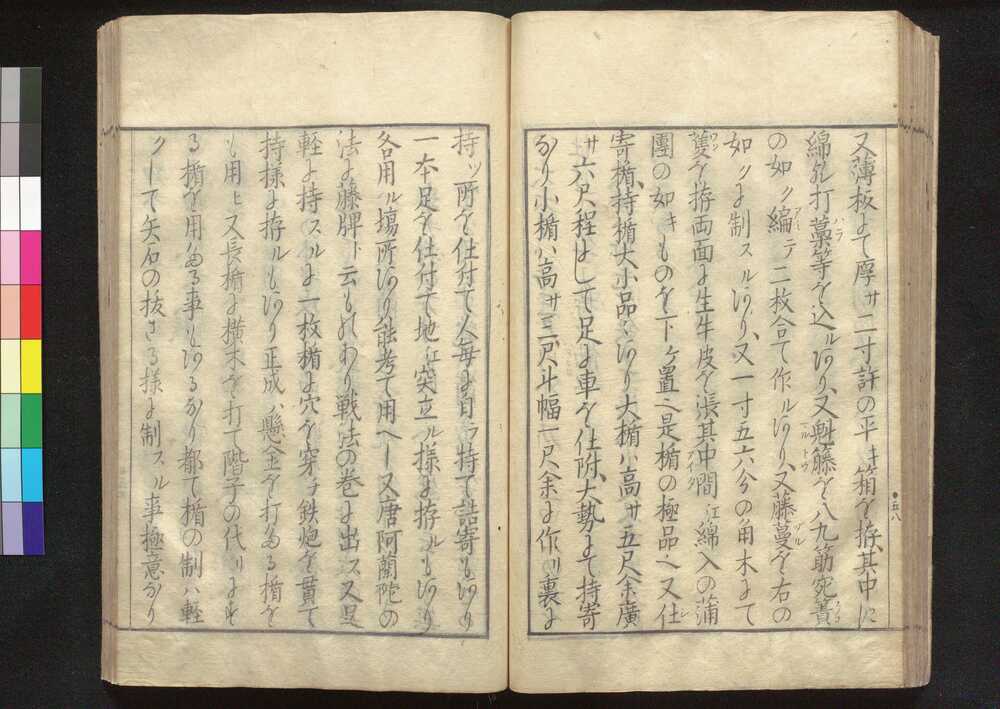 又薄板にて厚サ二寸許の平キ箱を拵其中に
綿或打藁等を込ルあり又魁籐を八九筋宛簀
の如ク編テ二枚合て作ルあり又藤蔓を右の
如クに制スルあり又一寸五六分の角木にて
隻を拵両面に生牛皮を張其中間江綿入の蒲
團の如キものを下ケ置へし是楯の極品也又仕
寄楯持楯大小品々あり大楯ハ高サ五尺余廣
サ六尺程にして足に車を仕附大勢にて持寄
なり小楯ハ高サ三尺斗幅一尺余に作り裏に
五八
持ツ所を仕付て人毎に自ラ持て詰寄もあり
一本足を仕付て地江突立ル様に拵ルもあり
各用ル場所あり能考て用へし又唐阿蘭陀の
法に藤牌ト云ものあり戦法の巻に出ス又是
軽に持スルに一枚楯に穴を穿チ鉄炮を貫て
持様に拵ルもあり正成ハ懸金を打たる楯を
も用ヒ又長楯に横木を打て階子の代りにせ
る楯を用たる事もあるなり都て楯の制ハ軽
クして矢石の抜さる様に制スル事極意なり